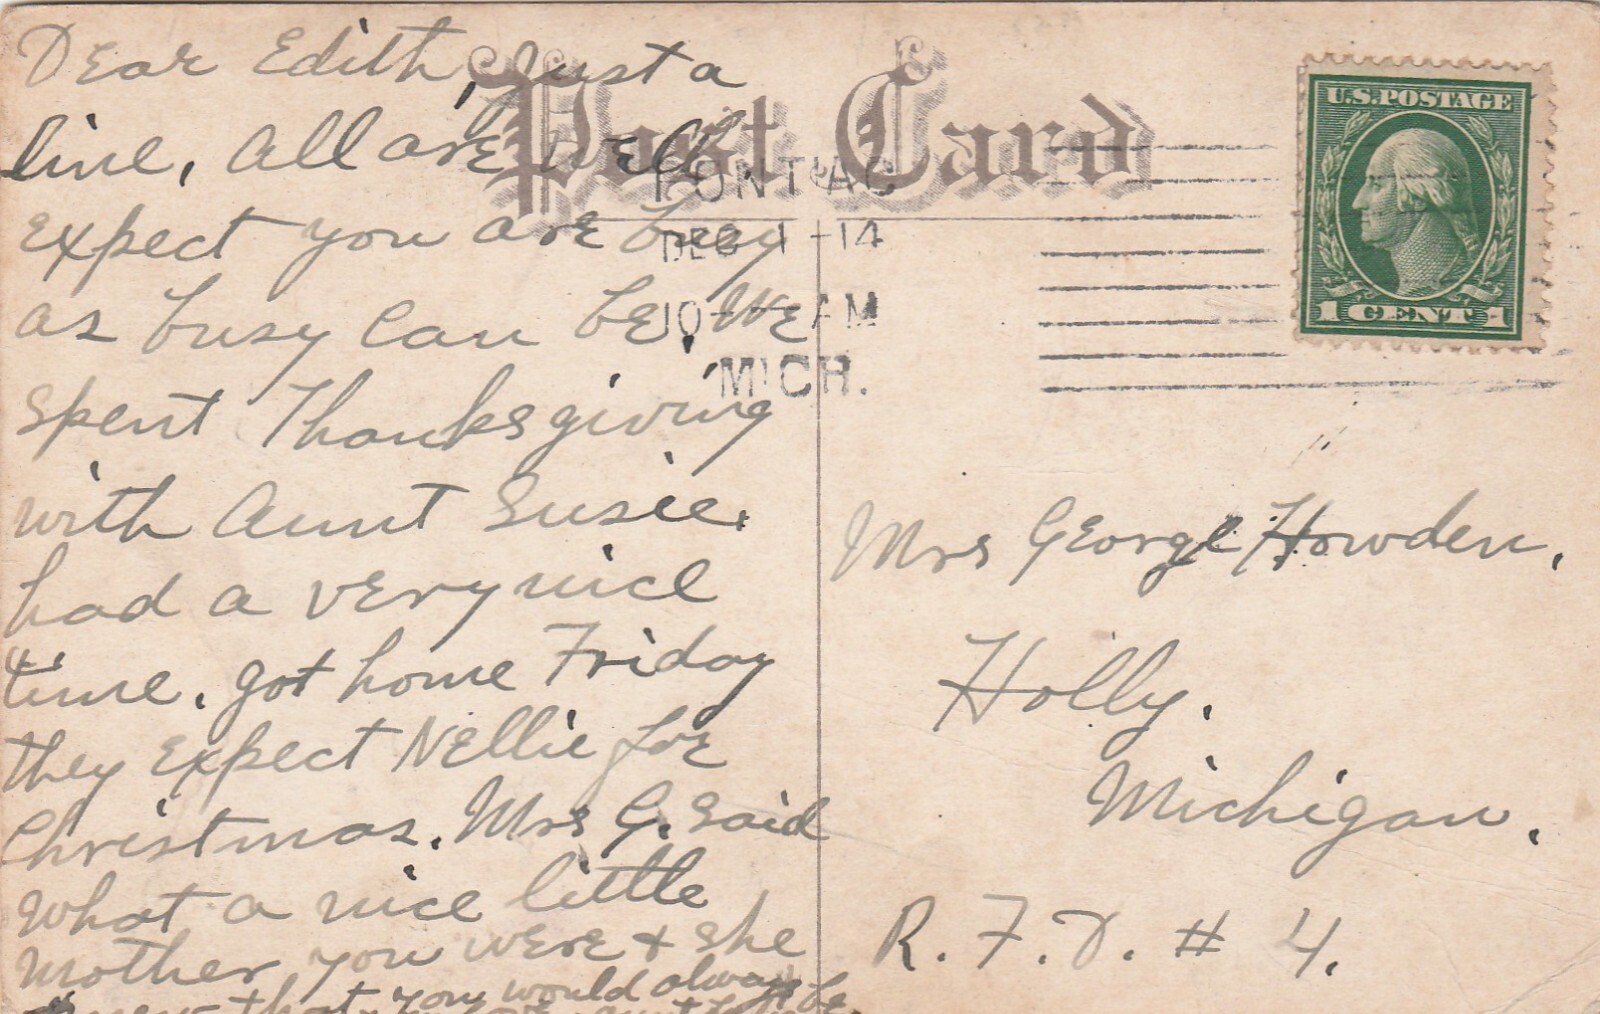 Dear Edith, Just a
line, all are well.
Expect you are busy
as busy can be. We
spent Thanksgiving
with Aunt Susie,
had a very nice
time. got home Friday
they Expect Nellie for
Christmas. Mrs G. said
what a nice little
mother you were & she
knew that you would always be
Post Card
PONTIAC
DEC 1 - 14
10 - AM
MICH.
U.S. POSTAGE
1 CENT 1
Mrs George Howden,
Holly,
Michigan,
R. F. D. # 4.